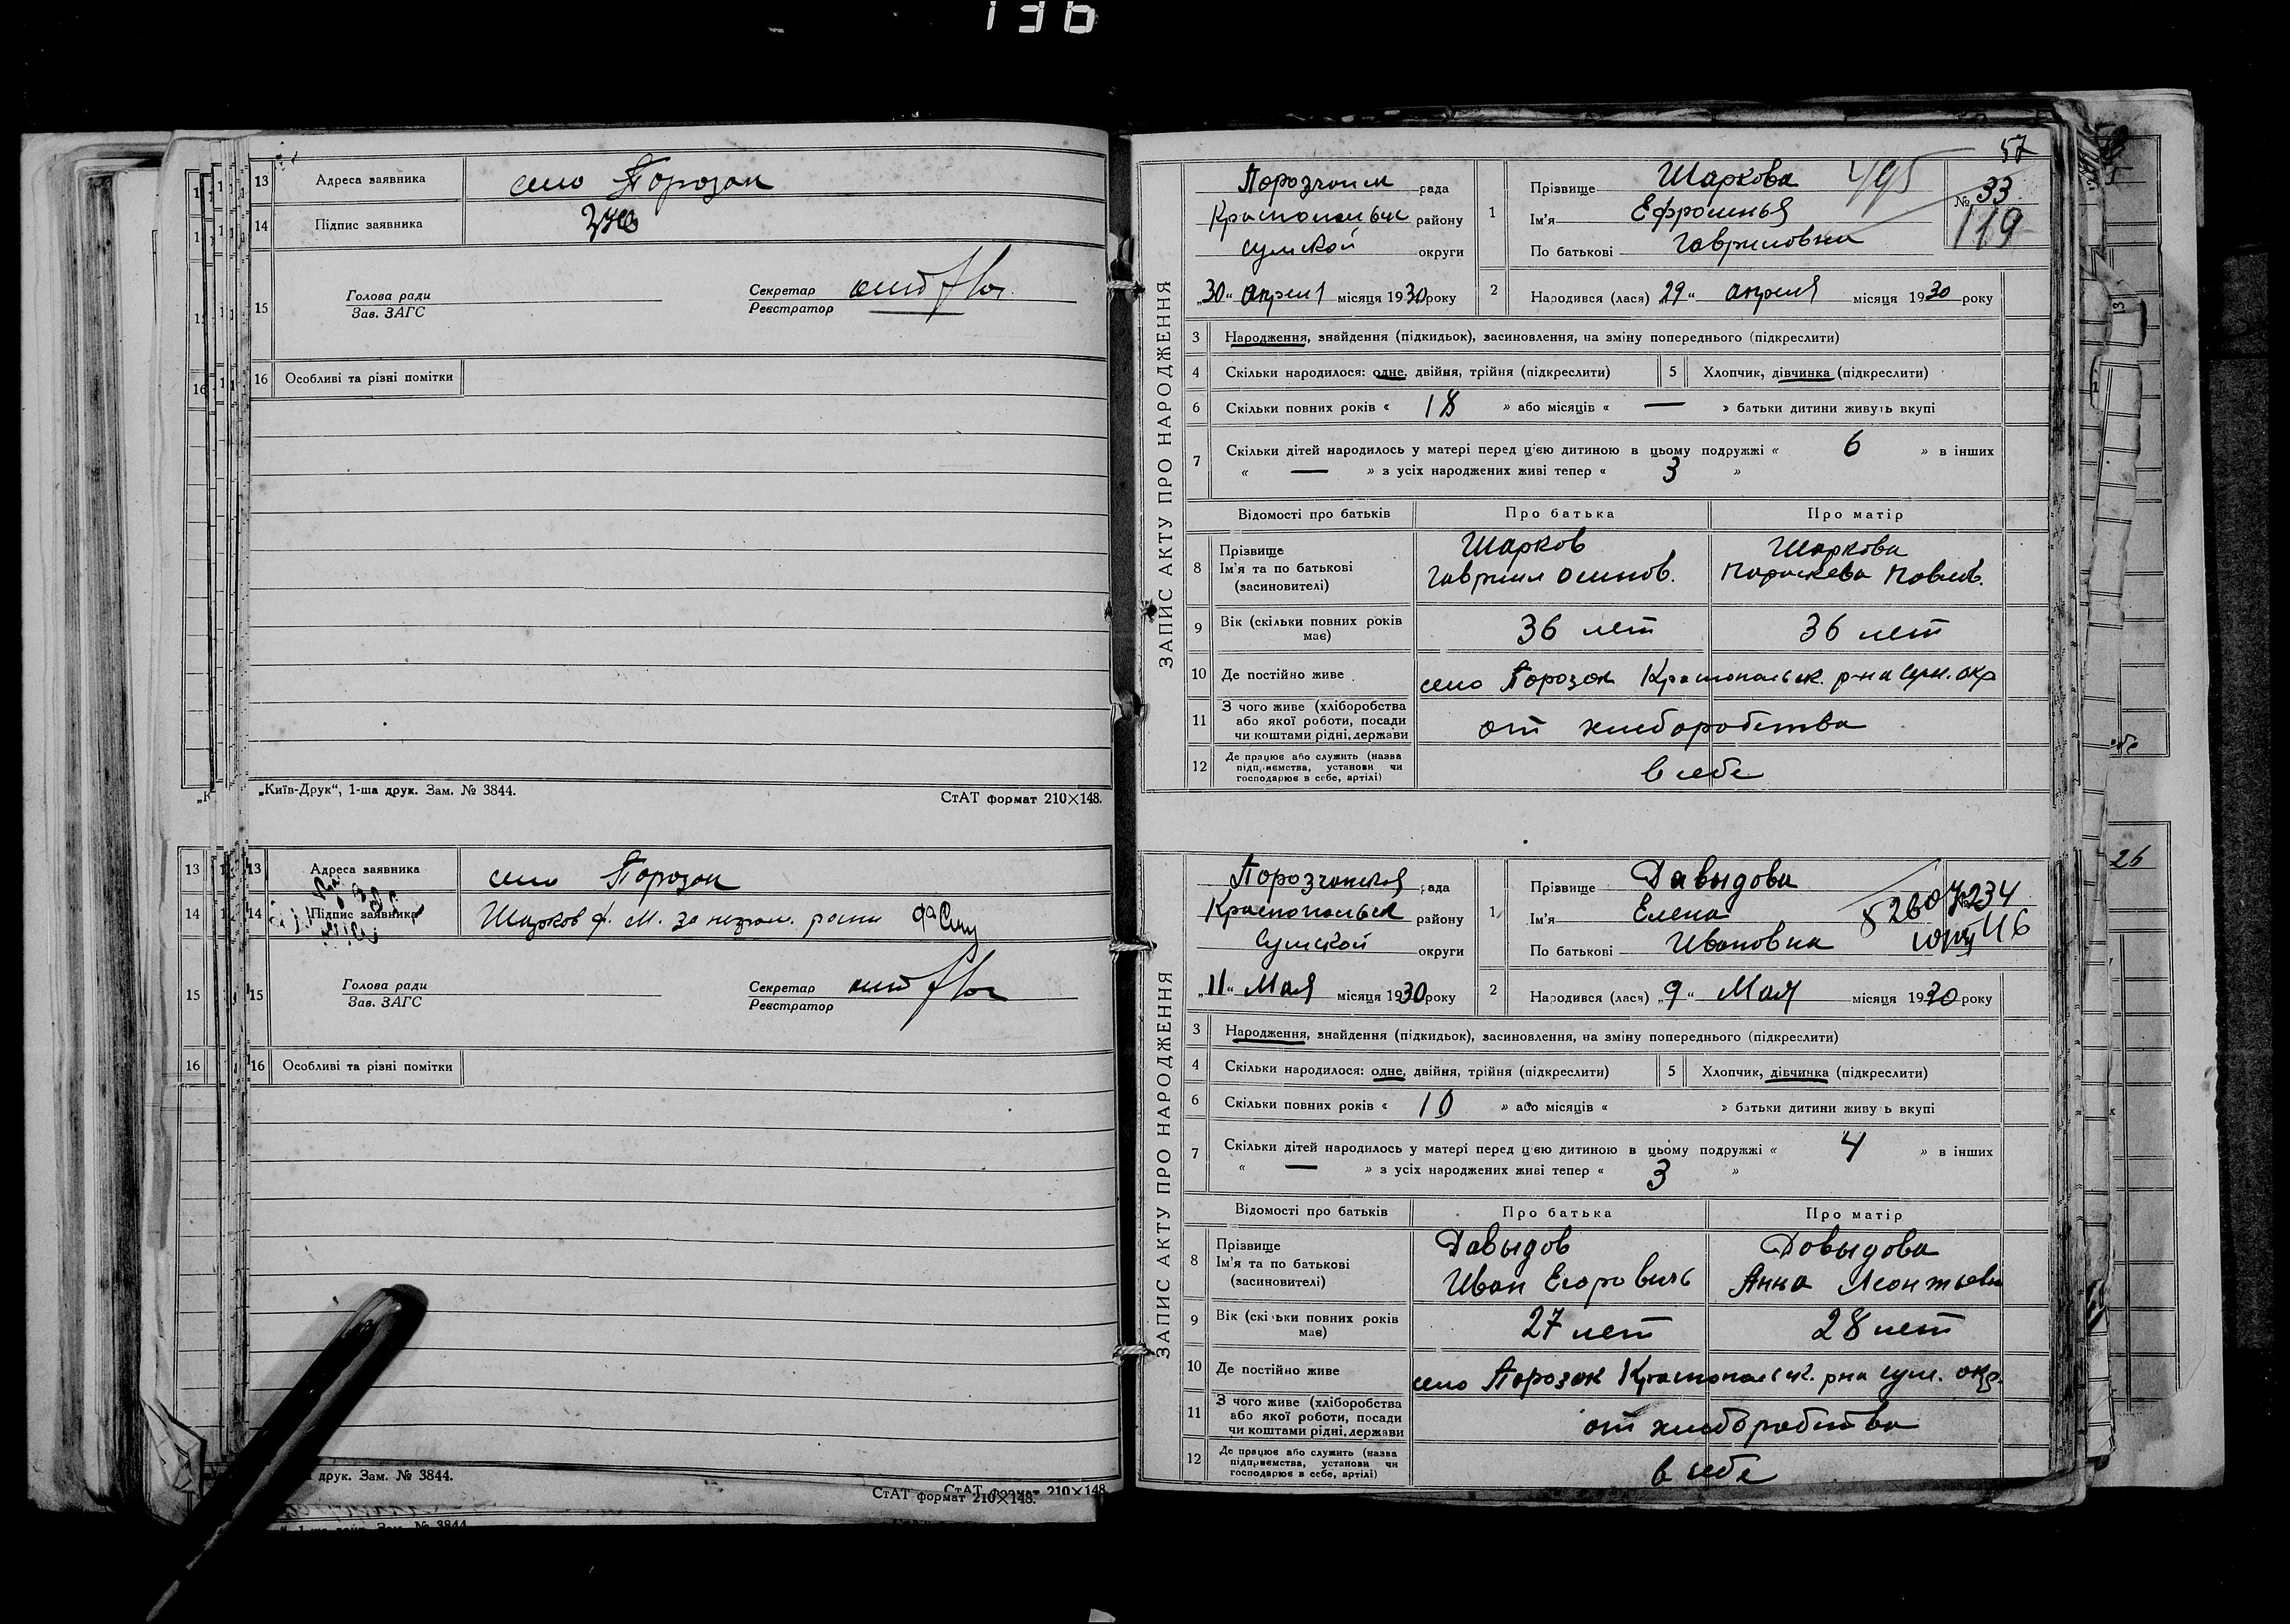 136
13 Адреса заявника село Порозок
14 Підпис заявника
15 Голова ради
Зав. ЗАГС
Секретар
Реєстратор
16 Особливі та різні помітки
„Київ-Друк“, 1-ша друк. Зам. № 3844.
СтАТ формат 210×148.
13 Адреса заявника село Порозок
14 Підпис заявника Шарков Ф. М. за негром. росп
15 Голова ради
Зав. ЗАГС
Секретар
Реєстратор
16 Особливі та різні помітки
друк. Зам. № 3844.
СтАТ формат 210×148
СтАТ формат 210×148.
57
ЗАПИС АКТУ ПРО НАРОДЖЕННЯ
Порозчанск рада
Краснопольск району
Сумской округи
„30“ апреля місяця 1930 року
1 Прізвище Шаркова 495
Ім'я Ефросинья
По батькові Гавриловна
№ 33
119
2 Народився (лася) 29“ апреля місяця 1930 року
3 Народження, знайдення (підкидьок), засиновлення, на зміну попереднього (підкреслити)
4 Скільки народилося: одне, двійня, трійня (підкреслити) 5 Хлопчик, дівчинка (підкреслити)
6 Скільки повних років « 18 » або місяців « — » батьки дитини живуть вкупі
7 Скільки дітей народилось у матері перед цією дитиною в цьому подружжі « 6 » в інших
« — » з усіх народжених живі тепер « 3 »
Відомості про батьків Про батька Про матір
8 Прізвище Шарков Шаркова
Ім'я та по батькові Гавриил Осипов. Параскева Павлов.
(засиновителі)
9 Вік (скільки повних років має) 36 лет 36 лет
10 Де постійно живе село Порозок Краснопольск. р-на Сум. окр
11 З чого живе (хліборобства
або якої роботи, посади от хлеборобства
чи коштами рідні, держави
12 Де працює або служить (назва
підприємства, установи чи в себе
господарює в себе, артілі)
ЗАПИС АКТУ ПРО НАРОДЖЕННЯ
Порозчанской рада
Краснопольск району
Сумской округи
„11“ Мая місяця 1930 року
1 Прізвище Давыдова
Ім'я Елена
По батькові Ивановна
2 Народився (лася) „9“ Мая місяця 1930 року
3 Народження, знайдення (підкидьок), засиновлення, на зміну попереднього (підкреслити)
4 Скільки народилося: одне, двійня, трійня (підкреслити) 5 Хлопчик, дівчинка (підкреслити)
6 Скільки повних років « 10 » або місяців « » батьки дитини живуть вкупі
7 Скільки дітей народилось у матері перед цією дитиною в цьому подружжі « 4 » в інших
« — » з усіх народжених живі тепер « 3 »
Відомості про батьків Про батька Про матір
8 Прізвище Давыдов Давыдова
Ім'я та по батькові Иван Егорович Анна Леонтьевн
(засиновителі)
9 Вік (скільки повних років має) 27 лет 28 лет
10 Де постійно живе село Порозок Краснопольск. р-на Сум. окр.
11 З чого живе (хліборобства
або якої роботи, посади от хлеборобства
чи коштами рідні, держави
12 Де працює або служить (назва
підприємства, установи чи в себе
господарює в себе, артілі)
26